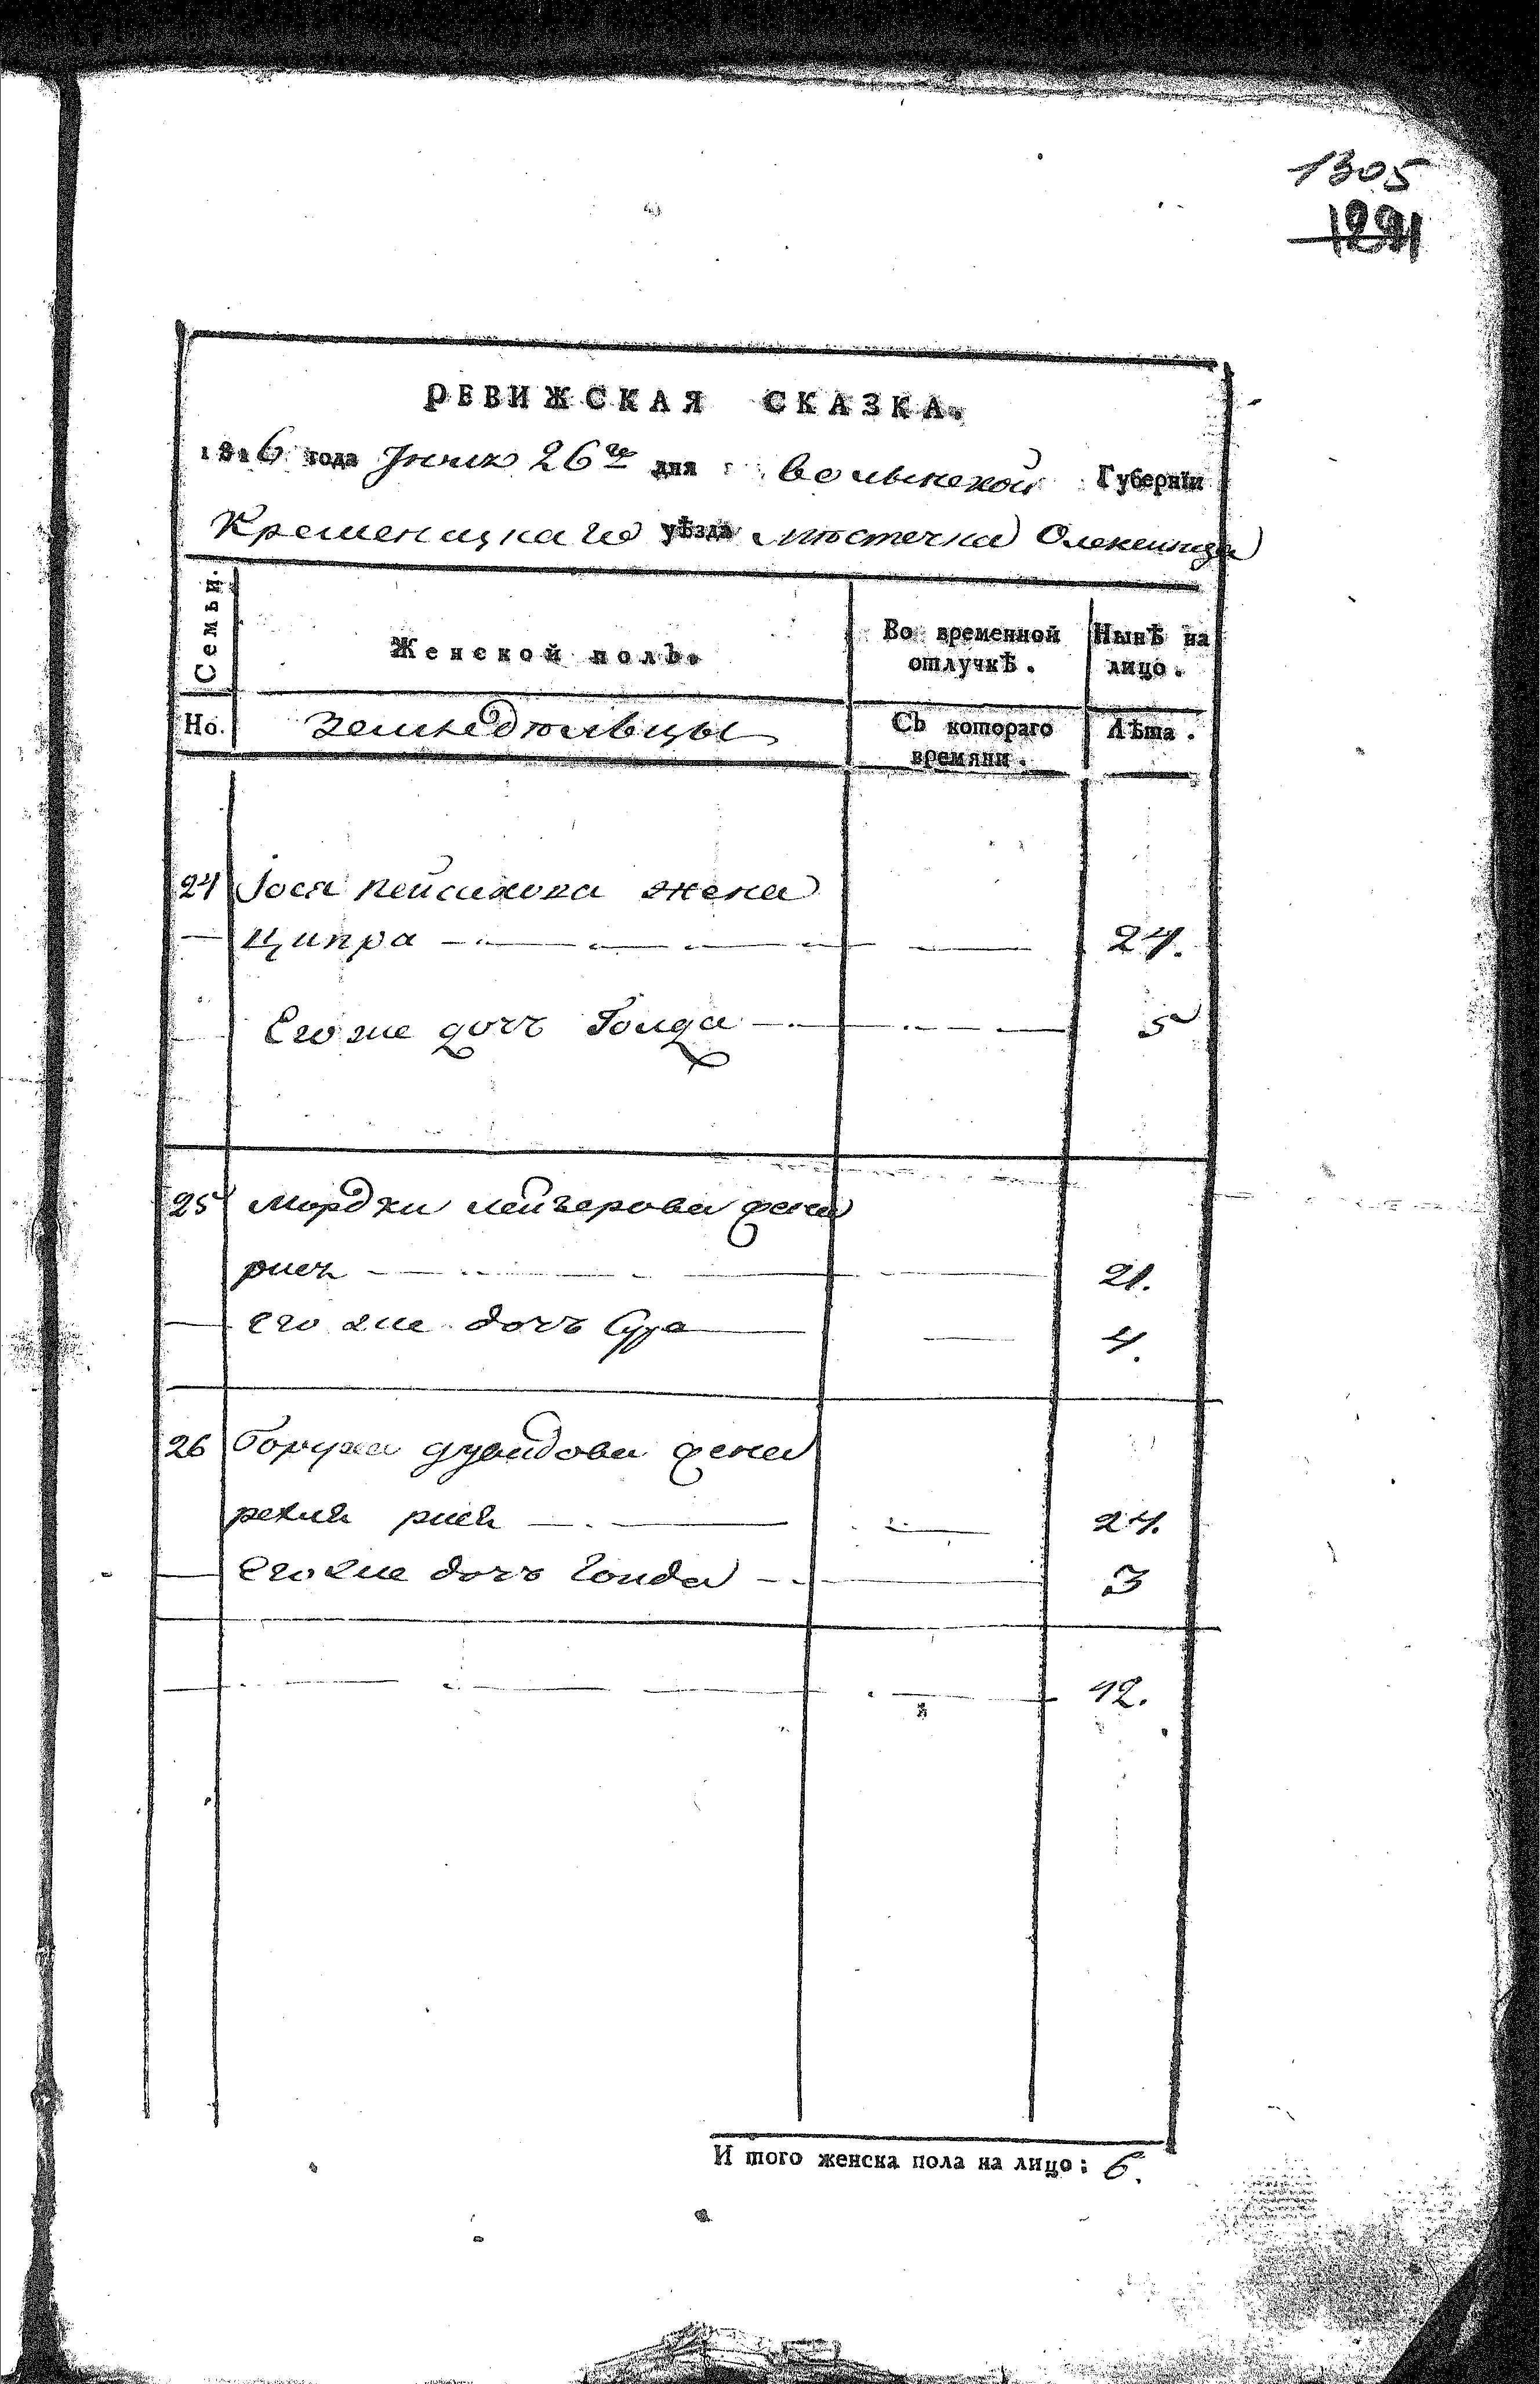 1305
1291
РЕВИЖСКАЯ СКАЗКА.
1816 года Июня 26го дня Волынской Губернїи
Кременецкаго уѣзда мѣстечка Олексинца
Семьи.
Женской полъ.
Во временной отлучкѣ.
Нынѣ на лицо.
Но.
Земледѣльцы
Съ котораго времяни.
Лѣта.
24 Іося Пейсахова жена
Ципра 24.
Его же дочь Голда 5
25 Мордки Лейзерова жена
Рися 21.
Его же дочь Сура 4.
26 Боруха Дувидова жена
Рися 24.
Его же дочь Голда 3
12.
И того женска пола на лицо: 6.